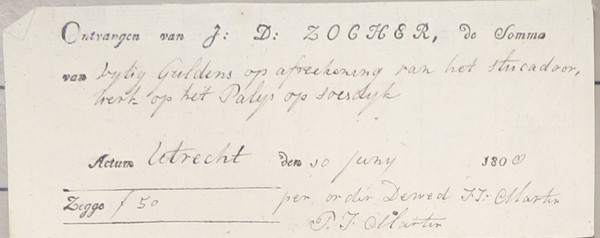 Ontvangen van J: D: ZOCHER, de Somma
van vyftig Guldens op afreekening van het stucadoor,
werk op het Palys op soesdyk
Actum Utrecht den 10 Juny 1808
Zegge f 50 per order Dewed J: Martin
P. J. Martin